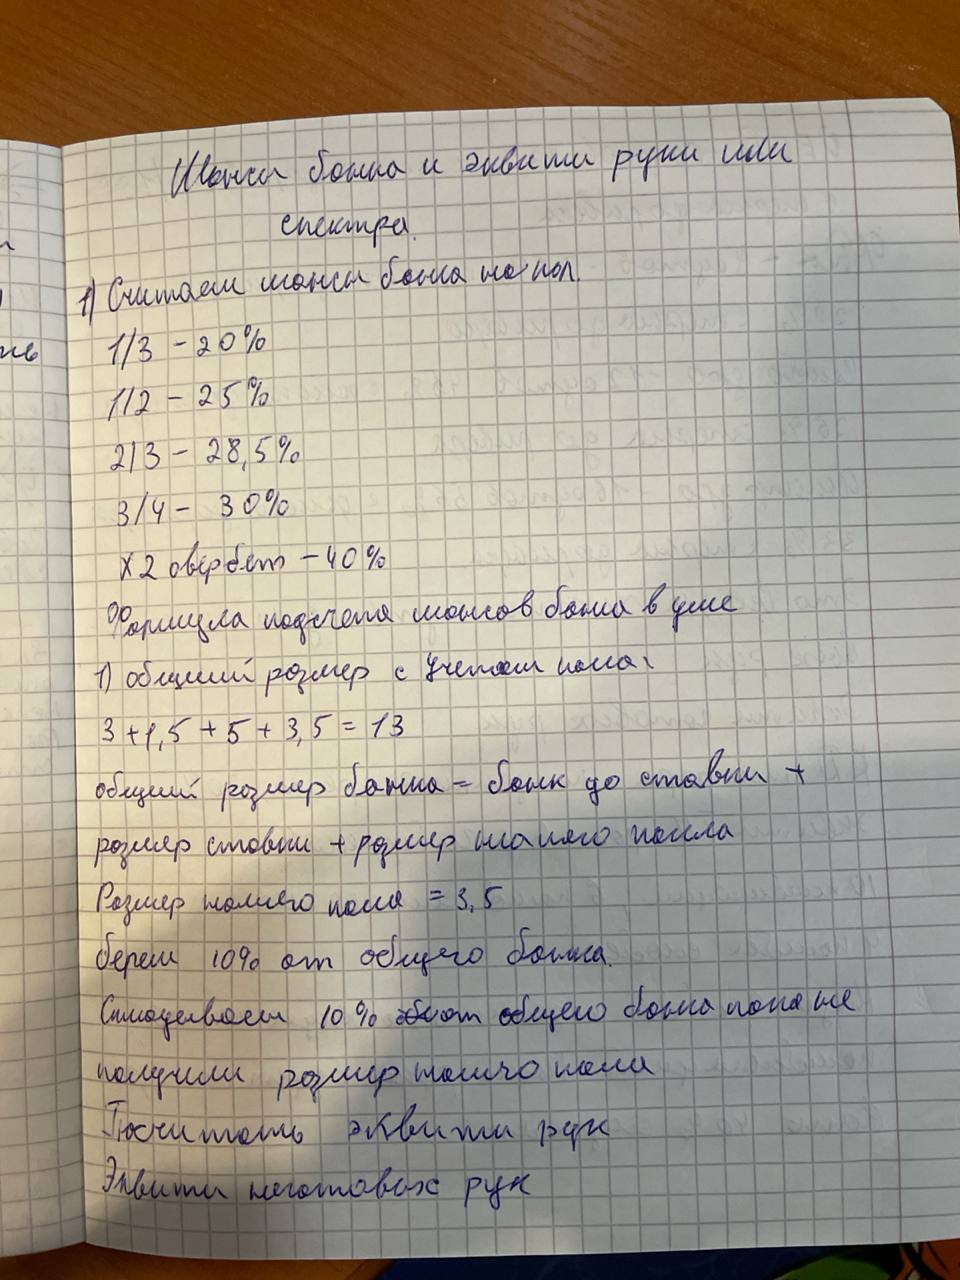 Шансы банка и эквити руки или
спектра.
1) Считаем шансы банка на кол.
1/3 - 20%
1/2 - 25%
2/3 - 28,5%
3/4 - 30%
х2 овербет - 40%
Формула подсчета шансов банка в уме
1) общий размер с учетом кола:
3 + 1,5 + 5 + 3,5 = 13
общий размер банка = банк до ставки +
размер ставки + размер нашего колла
Размер нашего кола = 3,5
берем 10% от общего банка.
Складываем 10% от общего банка пока не
получим размер нашего кола
Посчитать эквити рук
Эквити неготовых рук